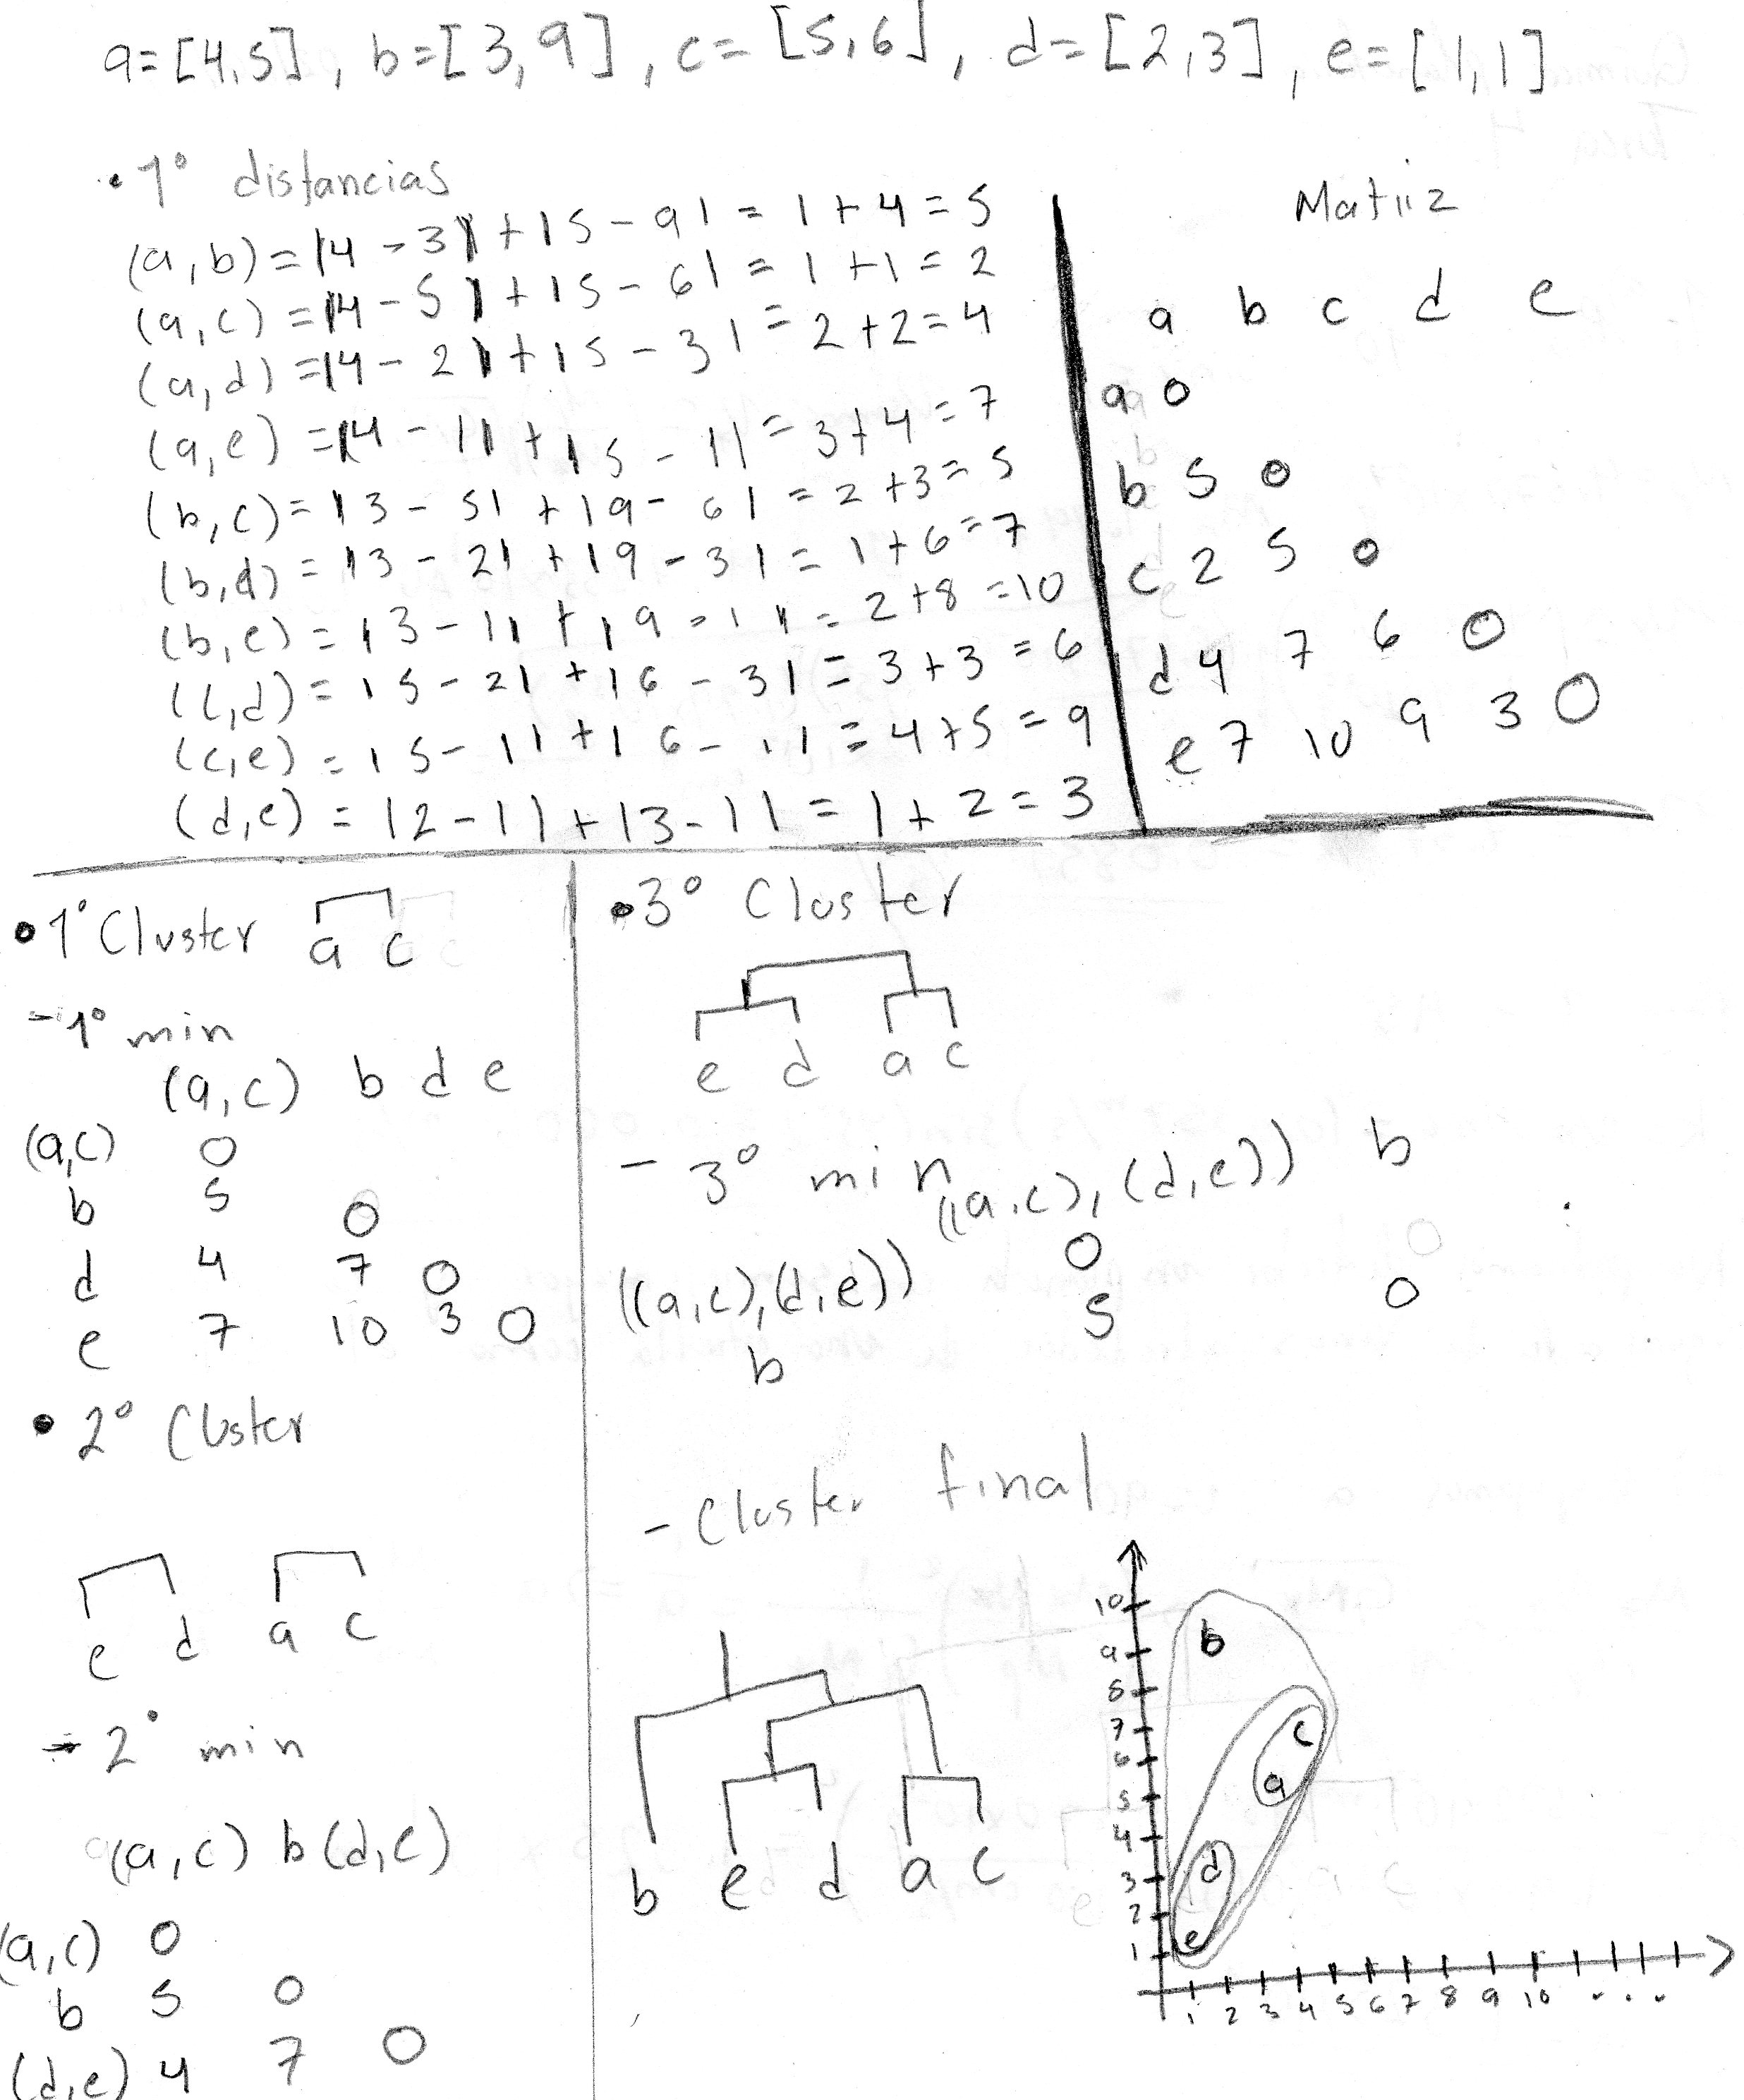 a=[4,5], b=[3,9], c=[5,6], d=[2,3], e=[1,1]
• 1° distancias
(a,b)=|4-3|+|5-9|=1+4=5
(a,c)=|4-5|+|5-6|=1+1=2
(a,d)=|4-2|+|5-3|=2+2=4
(a,e)=|4-1|+|5-1|=3+4=7
(b,c)=|3-5|+|9-6|=2+3=5
(b,d)=|3-2|+|9-3|=1+6=7
(b,e)=|3-1|+|9-1|=2+8=10
(c,d)=|5-2|+|6-3|=3+3=6
(c,e)=|5-1|+|6-1|=4+5=9
(d,e)=|2-1|+|3-1|=1+2=3
Matriz
a b c d e
a 0
b 5 0
c 2 5 0
d 4 7 6 0
e 7 10 9 3 0
• 1° Cluster
a c
- 1° min
(a,c) b d e
(a,c) 0
b 5 0
d 4 7 0
e 7 10 3 0
• 2° Cluster
e d a c
- 2° min
(a,c) b (d,e)
(a,c) 0
b 5 0
(d,e) 4 7 0
• 3° Cluster
e d a c
- 3° min
((a,c),(d,e)) b
((a,c),(d,e)) 0
b 5 0
- Cluster final
b e d a c
10
9
8
7
6
5
4
3
2
1
b
c
a
d
e
1 2 3 4 5 6 7 8 9 10 ...